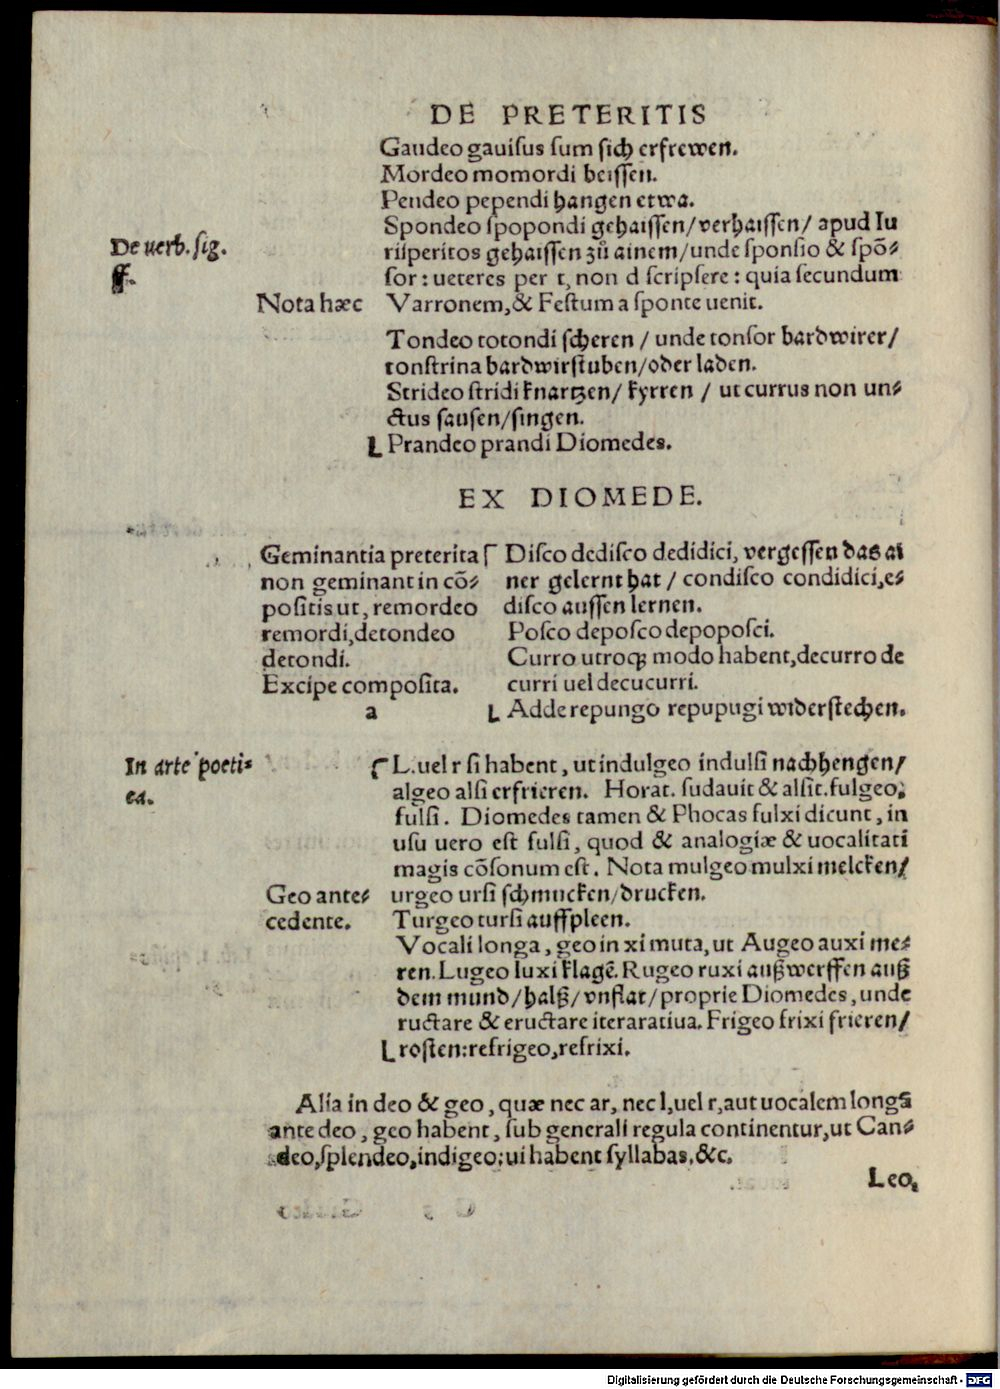 DE PRETERITIS
Gaudeo gauisus sum sich erfrewen.
Mordeo momordi beissen.
Pendeo pependi hangen etwa.
Spondeo spopondi gehaissen/verhaissen/ apud Iu
De uerb. sig.
ff.
risperitos gehaissen zů ainem/unde sponsio & spõ-
sor: ueteres per t, non d scripsere: quia secundum
Nota hæc
Varronem, & Festum a sponte uenit.
Tondeo totondi scheren / unde tonsor bardwirer/
tonstrina bardwirstuben/oder laden.
Strideo stridi knartzen/ kyrren / ut currus non un-
ctus sausen/singen.
Prandeo prandi Diomedes.
EX DIOMEDE.
Geminantia preterita
non geminant in cõ-
positis ut, remordeo
remordi, detondeo
detondi.
Excipe composita.
a
Disco dedisco dedidici, vergessen das ai
ner gelernt hat / condisco condidici, e-
disco aussen lernen.
Posco deposco depoposci.
Curro utroq; modo habent, decurro de
curri uel decucurri.
Adde repungo repupugi widerstechen.
In arte poeti-
ca.
L. uel r si habent, ut indulgeo indulsi nachhengen/
algeo alsi erfrieren. Horat. sudauit & alsit. fulgeo,
fulsi. Diomedes tamen & Phocas fulxi dicunt, in
usu uero est fulsi, quod & analogiæ & uocalitati
magis cõsonum est. Nota mulgeo mulxi melcken/
Geo ante-
cedente.
urgeo ursi schmucken/drucken.
Turgeo tursi auffpleen.
Vocali longa, geo in xi muta, ut Augeo auxi me-
ren. Lugeo luxi klagẽ. Rugeo ruxi außwerffen auß
dem mund/halß/vnflat/proprie Diomedes, unde
ructare & eructare iteraratiua. Frigeo frixi frieren/
rosten: refrigeo, refrixi.
Alia in deo & geo, quæ nec ar, nec l, uel r, aut uocalem longã
ante deo, geo habent, sub generali regula continentur, ut Can-
deo, splendeo, indigeo: ui habent syllabas, &c.
Leo,
Digitalisierung gefördert durch die Deutsche Forschungsgemeinschaft - DFG